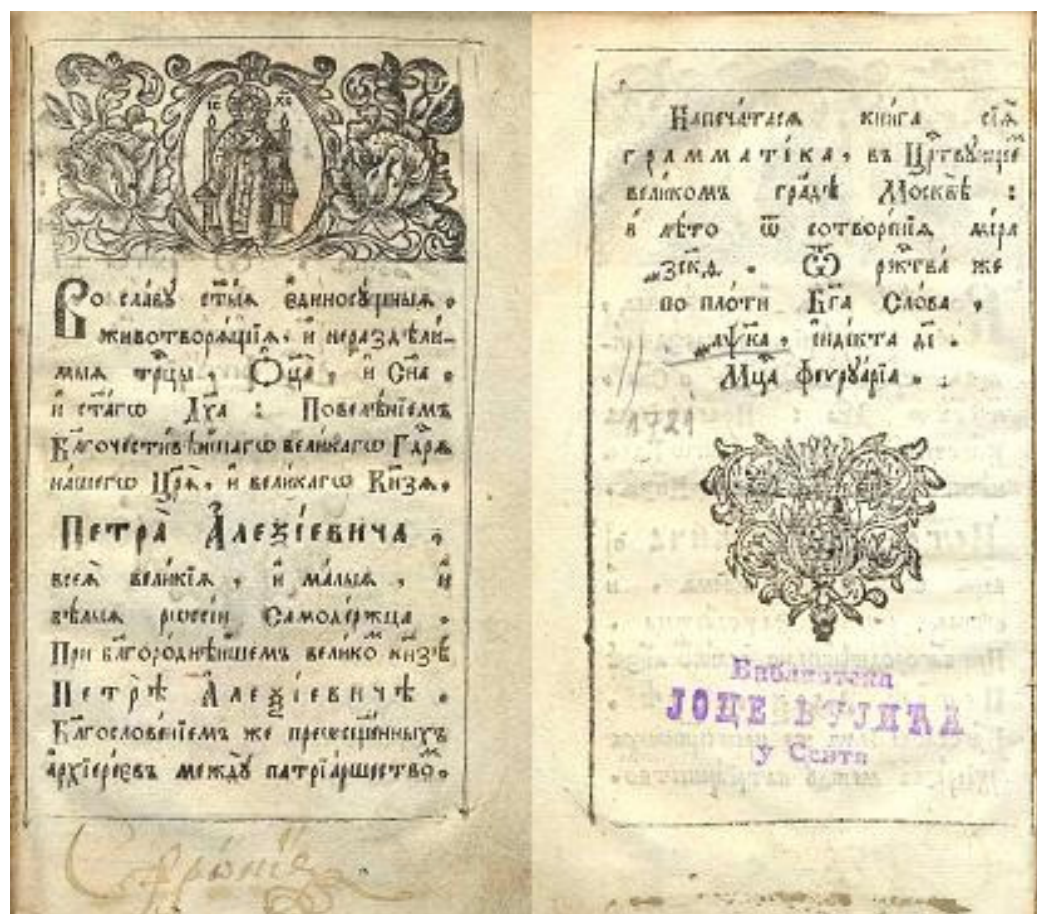 ІС ХС
Во сла́ву ст҃ы́ѧ є҆диносꙋ́щныѧ,
животворѧ́щїѧ, и нераздѣли́-
мыѧ трⷪ҇цы, Ѻ҆ц҃а̀, и Сн҃а,
и ст҃а́гѡ Дх҃а : Повелѣ́нїемъ
Бл҃гочести́вѣйшагѡ вели́кагѡ Гдⷭ҇рѧ
на́шегѡ Цр҃ѧ̀, и вели́кагѡ Кн҃зѧ,
Петра̀ А҆леѯі́евича,
всеѧ̀ вели́кїѧ, и ма́лыѧ, и
бѣ́лыѧ рѡссі́и Самоде́ржца.
При бл҃горо́днѣйшемъ вели́комъ кн҃зѣ
Петрѣ̀ А҆леѯі́евичѣ.
Бл҃гослове́нїемъ же преѡсщ҃е́нныхъ
а҆рхїере́євъ междꙋ̀ патрїа́ршествомъ.
Напеча́тасѧ кни́га сїѧ̀
грамма́тїка, въ Црⷭ҇твꙋющемъ
вели́комъ гра́дѣ Москвѣ̀ :
в лѣ́то ѿ сотворе́нїѧ мі́ра
҂зск҃ѳ. Ѿ ржⷭ҇тва̀ же
по пло́ти Бг҃а Сло́ва,
҂аѱк҃а, і҆ндїкта д҃і.
Мцⷭ҇а феврꙋа́рїа.
1721
Библиотека
ЈОЦЕ ВУЈИЋА
у Сенти